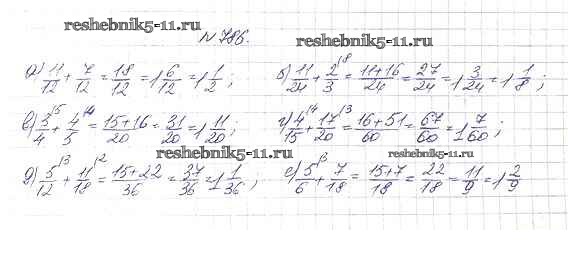 reshebnik5-11.ru
№786.
reshebnik5-11.ru
а) 11/12 + 7/12 = 18/12 = 1 6/12 = 1 1/2 ; б) 11/24 + 2/3^\8 = 11+16/24 = 27/24 = 1 3/24 = 1 1/8 ;
в) 3/4^\5 + 4/5^\4 = 15+16/20 = 31/20 = 1 11/20 ; г) 4/15^\4 + 17/20^\3 = 16+51/60 = 67/60 = 1 7/60 ;
reshebnik5-11.ru
reshebnik5-11.ru
д) 5/12^\3 + 11/18^\2 = 15+22/36 = 37/36 = 1 1/36 ; е) 5/6^\3 + 7/18 = 15+7/18 = 22/18 = 11/9 = 1 2/9
reshebnik5-11.ru